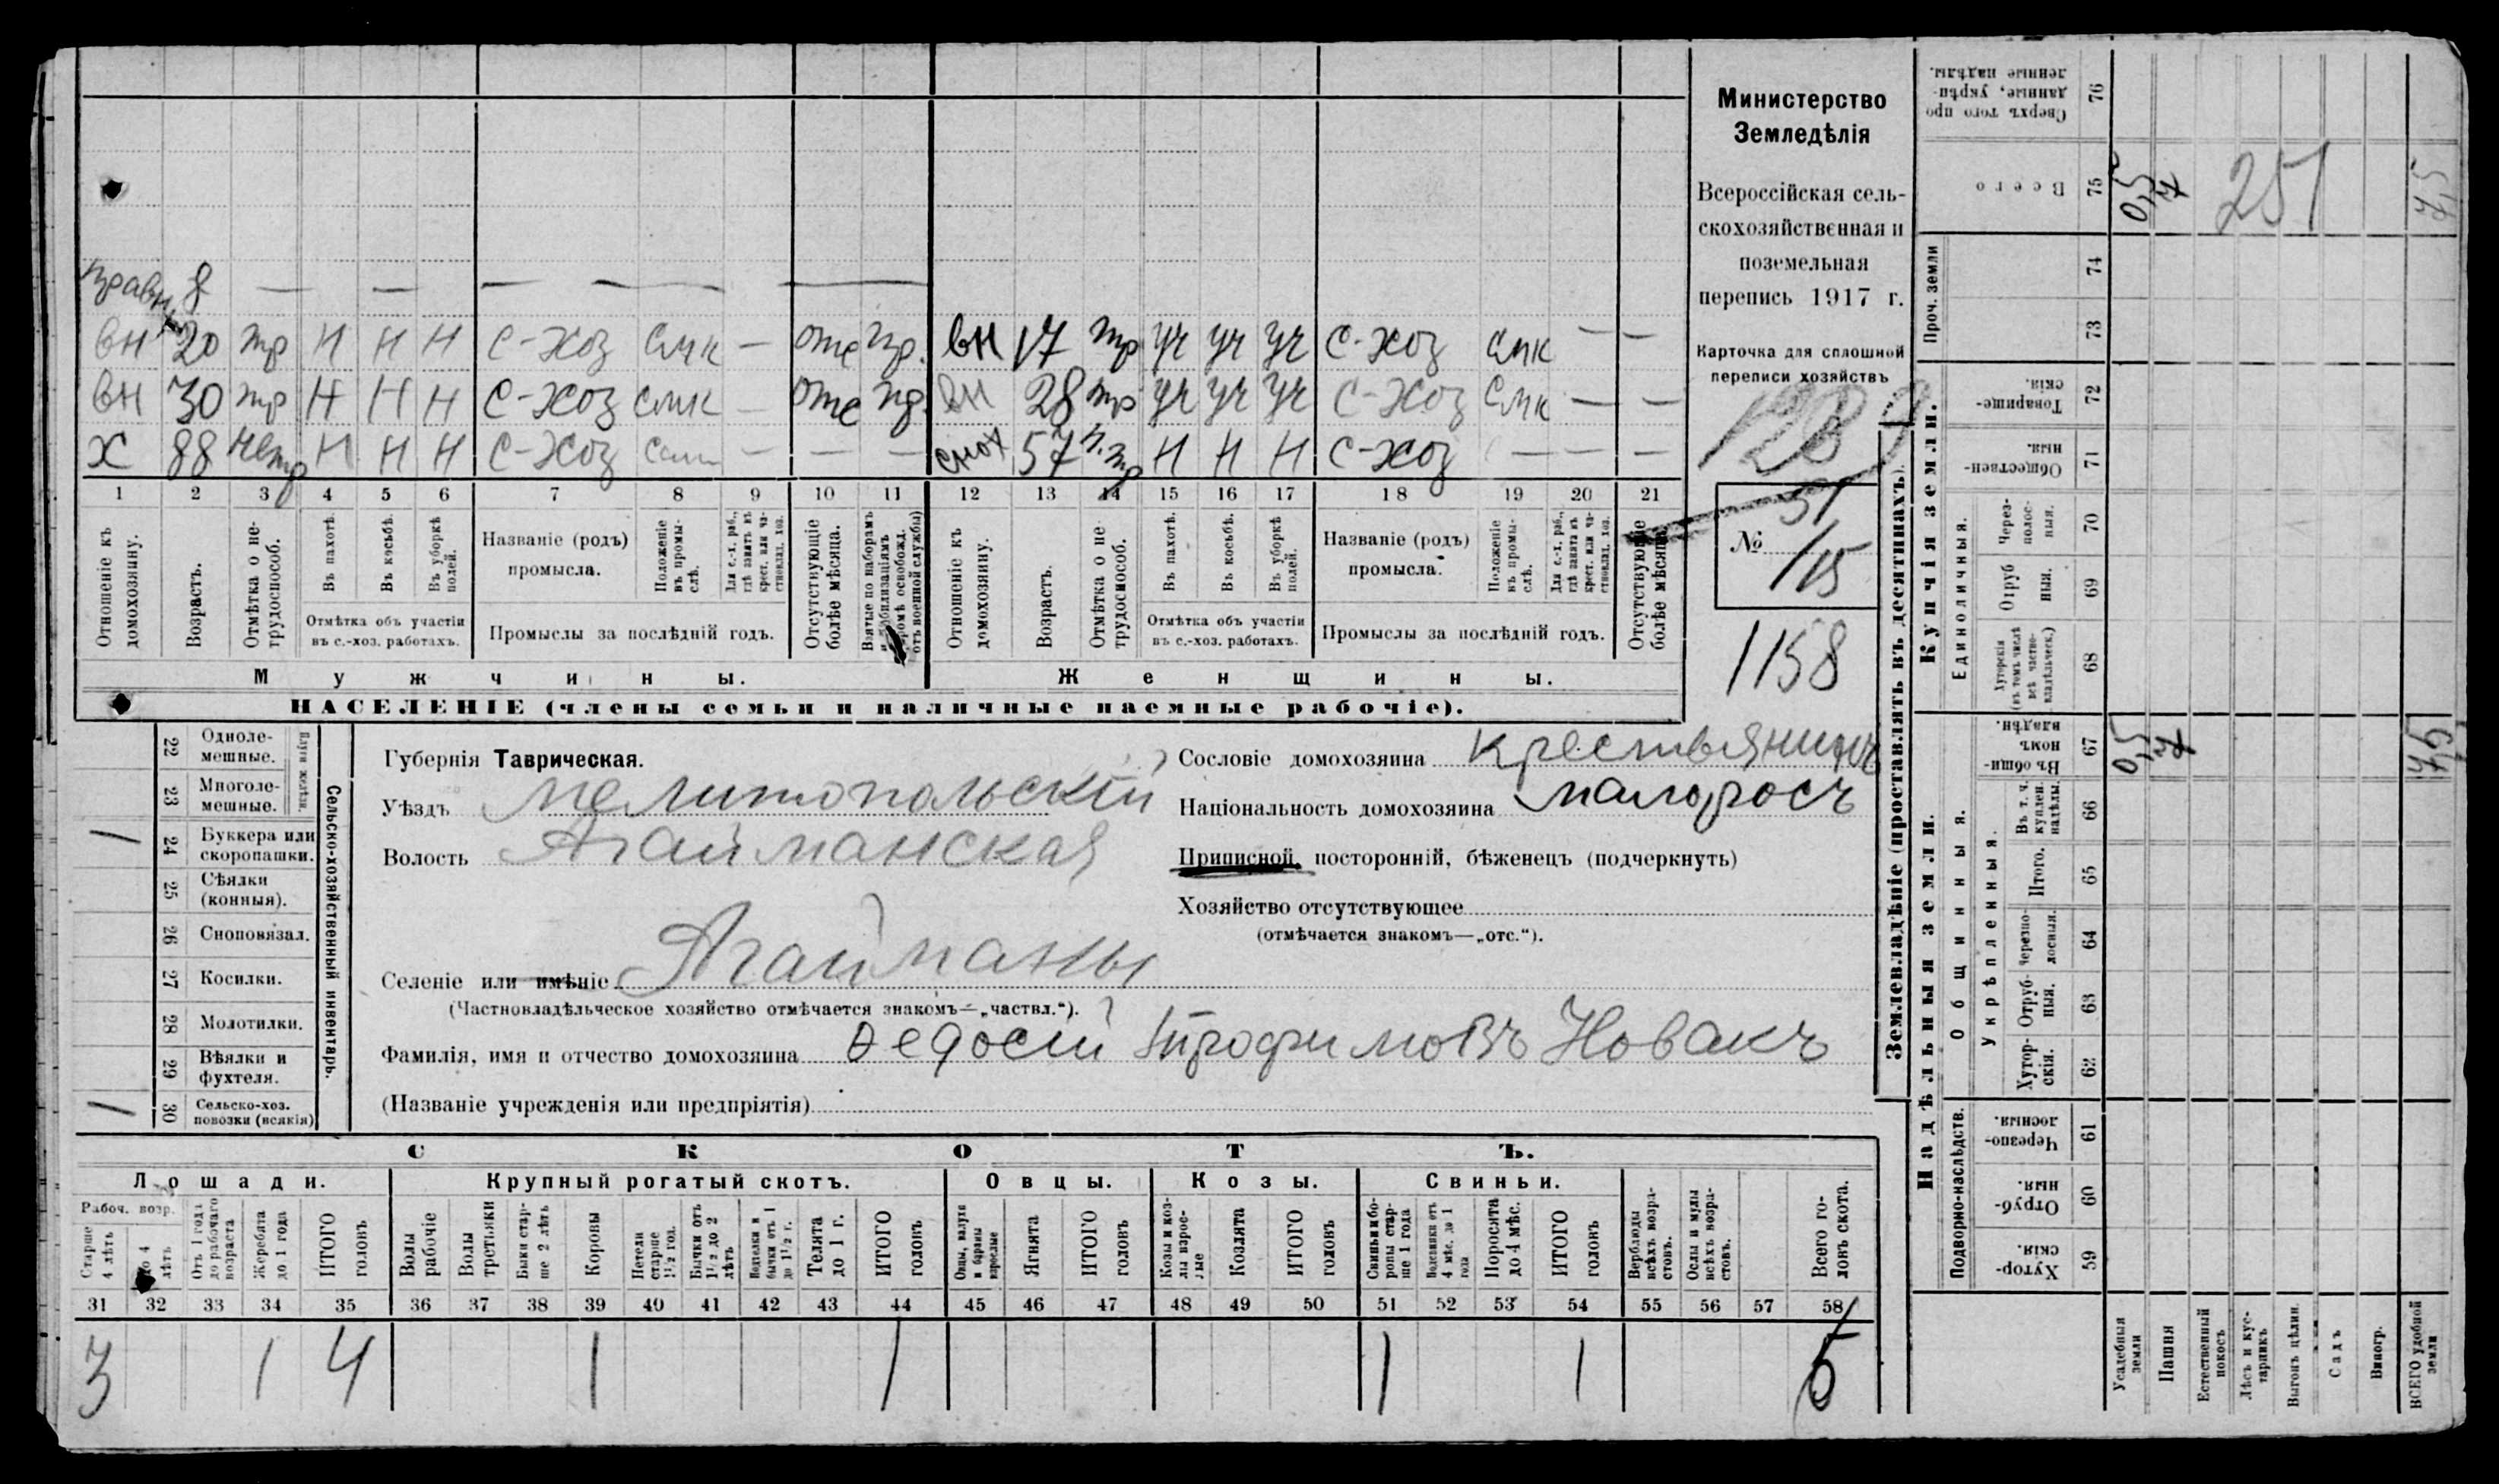 Министерство
Земледѣлія
Всероссійская сель-
скохозяйственная и
поземельная
перепись 1917 г.
Карточка для сплошной
переписи хозяйствъ
№ 115
1158
правн 8 — — — — —
вн 20 тр н н н с-хоз смк — отс пр. вн 17 тр уч уч уч с-хоз смк — —
вн 30 тр н н н с-хоз смк — отс пр. вн 28 тр уч уч уч с-хоз смк — —
х 88 нетр н н н с-хоз сам — — — снох 57 п.тр н н н с-хоз — — —
1 2 3 4 5 6 7 8 9 10 11 12 13 14 15 16 17 18 19 20 21
Отношеніе къ домохозяину.
Возрастъ.
Отмѣтка о не-трудоспособ.
Въ пахотѣ.
Въ косьбѣ.
Въ уборкѣ полей.
Отмѣтка объ участіи
въ с.-хоз. работахъ.
Названіе (родъ)
промысла.
Положеніе въ промы-слѣ.
Для с.-х. раб., гдѣ занятъ въ крест. или ча-стновлад. хоз.
Промыслы за послѣдній годъ.
Отсутствующіе болѣе мѣсяца.
Взятые по наборамъ и мобилизаціямъ (кромѣ освобожд. отъ военной службы)
Отношеніе къ домохозяину.
Возрастъ.
Отмѣтка о не-трудоспособ.
Въ пахотѣ.
Въ косьбѣ.
Въ уборкѣ полей.
Отмѣтка объ участіи
въ с.-хоз. работахъ.
Названіе (родъ)
промысла.
Положеніе въ промы-слѣ.
Для с.-х. раб., гдѣ занята въ крест. или ча-стновлад. хоз.
Промыслы за послѣдній годъ.
Отсутствующіе болѣе мѣсяца.
Мужчины. Женщины.
НАСЕЛЕНІЕ (члены семьи и наличные наемные рабочіе).
Сельско-хозяйственный инвентарь.
Плуги желѣзн.
22 Однолемешные.
23 Многолемешные.
24 Буккера или скоропашки. 1
25 Сѣялки (конныя).
26 Сноповязал.
27 Косилки.
28 Молотилки.
29 Вѣялки и фухтеля.
30 Сельско-хоз. повозки (всякія) 1
Губернія Таврическая.
Уѣздъ Мелитопольскій
Волость Агайманская
Селеніе или имѣніе Агайманы
(Частновладѣльческое хозяйство отмѣчается знакомъ—„частвл.“).
Сословіе домохозяина крестьянинъ
Національность домохозяина малоросъ
Приписной, посторонній, бѣженецъ (подчеркнуть)
Хозяйство отсутствующее
(отмѣчается знакомъ—„отс.“).
Фамилія, имя и отчество домохозяина Ѳедосій Трофимовъ Новакъ
(Названіе учрежденія или предпріятія)
СКОТЪ.
Лошади. Крупный рогатый скотъ. Овцы. Козы. Свиньи.
Рабоч. возр.
Старше 4 лѣтъ
До 4 лѣтъ
Отъ 1 года до рабочаго возраста
Жеребята до 1 года
ИТОГО головъ
Волы рабочіе
Волы третьяки
Быки стар-ше 2 лѣтъ
Коровы
Нетели старше 1½ год.
Бычки отъ 1½ до 2 лѣтъ
Телки и бычки отъ 1 до 1½ г.
Телята до 1 г.
ИТОГО головъ
Овцы, валухи и бараны взрослые
Ягнята
ИТОГО головъ
Козы и коз-лы взрос-лые
Козлята
ИТОГО головъ
Свиньи и бо-ровы стар-ше 1 года
Подсвинки отъ 4 мѣс. до 1 года
Поросята до 4 мѣс.
ИТОГО головъ
Верблюды всѣхъ возра-стовъ.
Ослы и мулы всѣхъ возра-стовъ.
Всего го-ловъ скота.
31 32 33 34 35 36 37 38 39 40 41 42 43 44 45 46 47 48 49 50 51 52 53 54 55 56 57 58
3 1 4 1 1 1 1 6
Землевладѣніе (проставлять въ десятинахъ).
Купчія земли.
Надѣльныя земли.
Сверхъ того про-данные, укрѣп-ленные надѣлы. 76
Всего 75 0,5 7 251 7,5
Проч. земли 74 73
Товарище-скія. 72
Обществен-ныя. 71
Единоличныя.
Через-полос-ныя. 70
Отруб-ныя. 69
Хуторскія (въ томъ числѣ всѣ частно-владѣльческ.) 68
Общинныя.
Въ общин-номъ владѣн. 67 0,5 7 7,5
Укрѣпленныя.
Въ т. ч. куплен. надѣлы. 66
Итого. 65
Черезпо-лосныя. 64
Отруб-ныя. 63
Хутор-скія. 62
Подворно-наслѣдств.
Черезпо-лосныя. 61
Отруб-ныя. 60
Хутор-скія. 59
Усадебныя земли
Пашня
Естественный покосъ
Лѣсъ и кус-тарникъ
Выгонъ цѣлин.
Садъ
Виногр.
ВСЕГО удобной земли